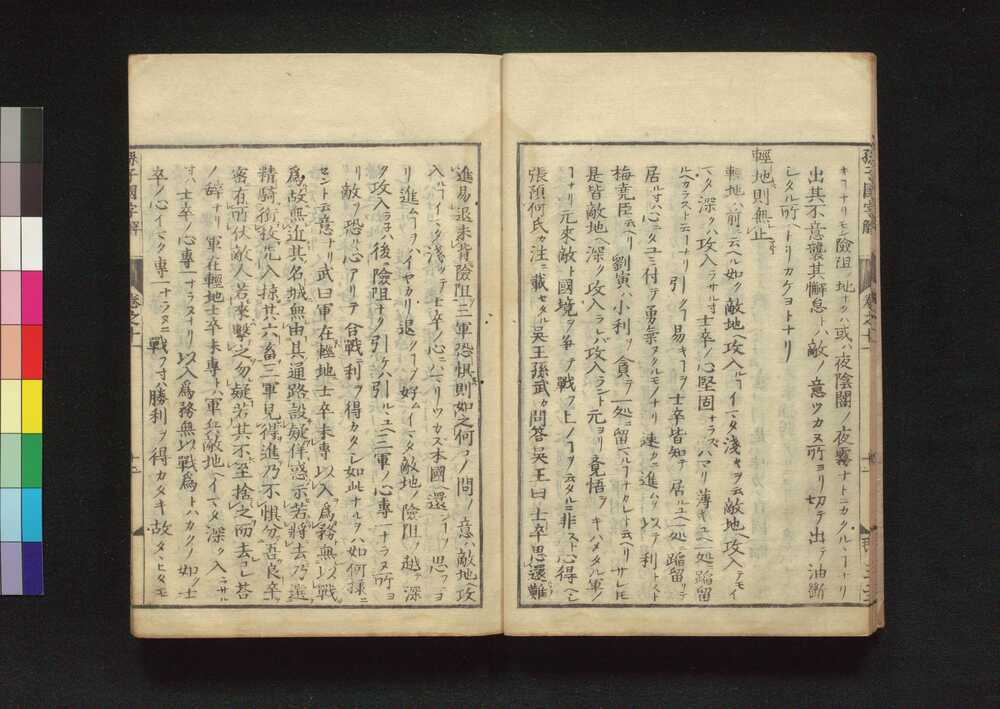 キコナリモシ險阻ノ地ナクハ或ハ夜陰闇ノ夜霧ナトニカクルヽコナリ
出其不意襲其懈怠トハ敵ノ意ツカヌ所ヨリ切テ出テ油斷
シタル所ヘトリカケヨトナリ
輕地則無止
輕地ハ前ニ云ヘル如ク敵地ヘ攻入ルコイマタ淺キヲ云敵地ヘ攻入テモイ
マタ深クハ攻入ラサル寸ハ士卒ノ心堅固ナラスハマリ薄キユヘ一処ニ蹈留
ルヘカラスト云コナリ
引ク易キコヲ士卒皆知テ居ルユヘ一処ニ蹈留リテ
居ル寸ハ心ニタユミ付テ勇氣ヌクルモノナリ速カニ進ムヲ以テ利トスヘシト
梅堯臣云ヘリ劉寅ハ小利ヲ貪テ一処ニ留ルコナカレト云ヘリサレ𪜈
是皆敵地ヘ深ク攻入ラレハ攻入ラント元ヨリ覺悟ヲキハメタル軍ノ
コナリ元來敵ト國境ヲ爭フ戰フ上ノコヲ云タルニ非スト心得ヘシ
張預何氏カ注ニ載セタル吳王孫武カ問答吳王曰士卒思還難
進易退未背險阻三軍恐懼則如之何コノ問ノ意ハ敵地ヘ攻
入コイマタ淺クシテ士卒ノ心ハマリツカス本國ヘ還ランコヲ思フコヨ
リ進ムコヲイヤカリ退クコヲ好ムイマタ敵地ノ險阻ヲ越テ深
ク攻入ラサレハ後ニ險阻ナク引ハ引ルヽユヘ三軍ノ心專一ナラヌ所ヨ
リ敵ヲ恐ルヽ心アリテ合戰ニ利ヲ得カタシ如此ナルヲハ如何樣ニ
セント云意ナリ武曰軍在輕地士卒未專以入爲務無以戰
爲故無近其名城無由其通路設疑佯惑示若將去乃選
精騎銜枚先入掠其六畜三軍見得進乃不懼分吾良卒
密有所伏敵人若來擊之勿疑若其不至捨之而去コレ荅
ノ辭ナリ軍在輕地士卒未專トハ軍兵敵地ヘイマタ深ク入ラサル
寸ハ士卒ノ心專一ナラヌナリ以入爲務無以戰爲トハカクノ如ク士
卒ノ心イマタ專一ナラヌニ戰フ寸ハ勝利ヲ得カタキ故タヽヒタモ
孫子國字解
卷之十一